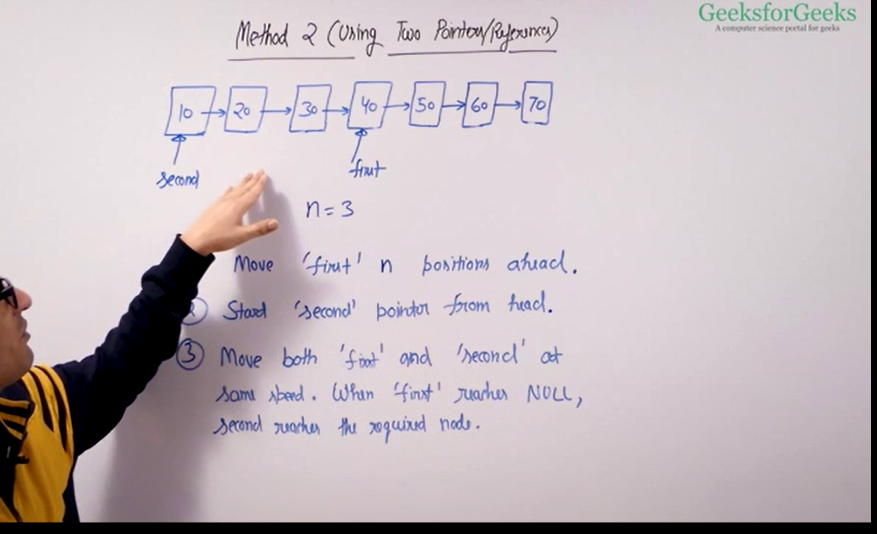 GeeksforGeeks
A computer science portal for geeks
Method 2 (Using Two Pointers/References)
10 20 30 40 50 60 70
second first
n = 3
Move 'first' n positions ahead.
2 Start 'second' pointer from head.
3 Move both 'first' and 'second' at
same speed. When 'first' reaches NULL,
second reaches the required node.